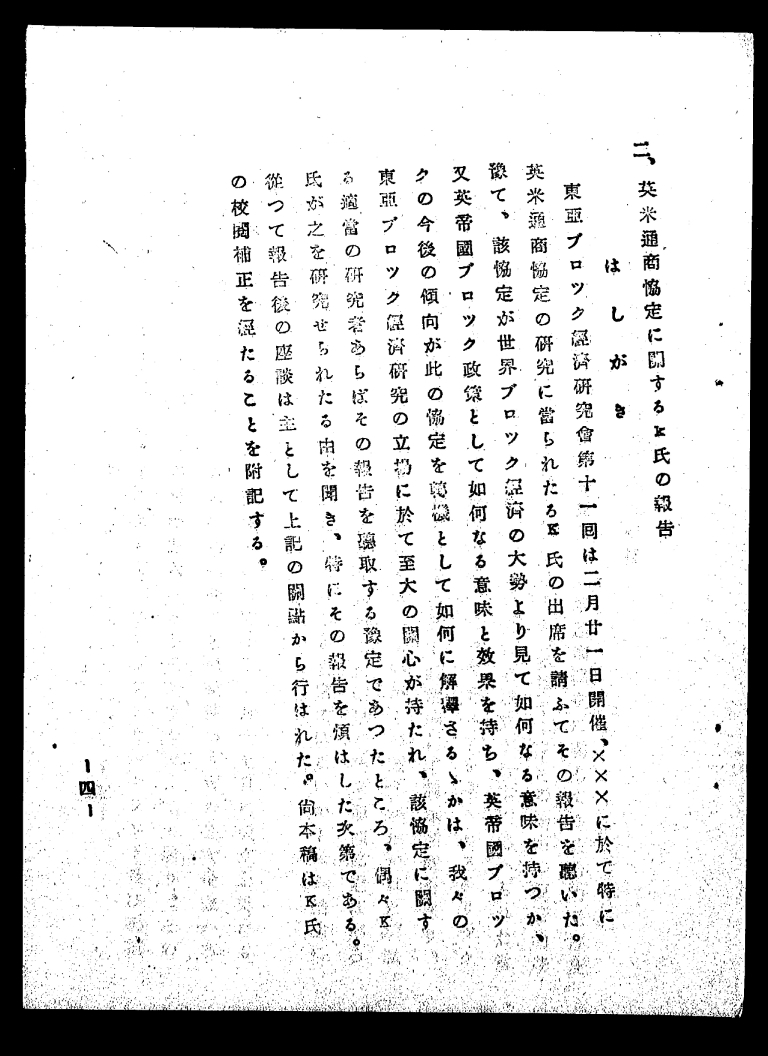 二、英米通商協定に關するK氏の報告
はしがき
東亞ブロツク經濟研究會第十一回は二月廿一日開催、×××に於て特に
英米通商協定の研究に當られたるK氏の出席を請ふてその報告を聽いた。
豫て、該協定が世界ブロツク經濟の大勢より見て如何なる意味を持つか、
又英帝國ブロツク政策として如何なる意味と效果を持ち、英帝國ブロツ
クの今後の傾向が此の協定を轉機として如何に解釋さるゝかは、我々の
東亞ブロツク經濟研究の立場に於て至大の關心が持たれ、該協定に關す
る適當の研究者あらばその報告を聽取する豫定であつたところ、偶々K
氏が之を研究せられたる由を聞き、特にその報告を煩はした次第である。
從つて報告後の座談は主として上記の關點から行はれた。尙本稿はK氏
の校閲補正を經たることを附記する。
―四―